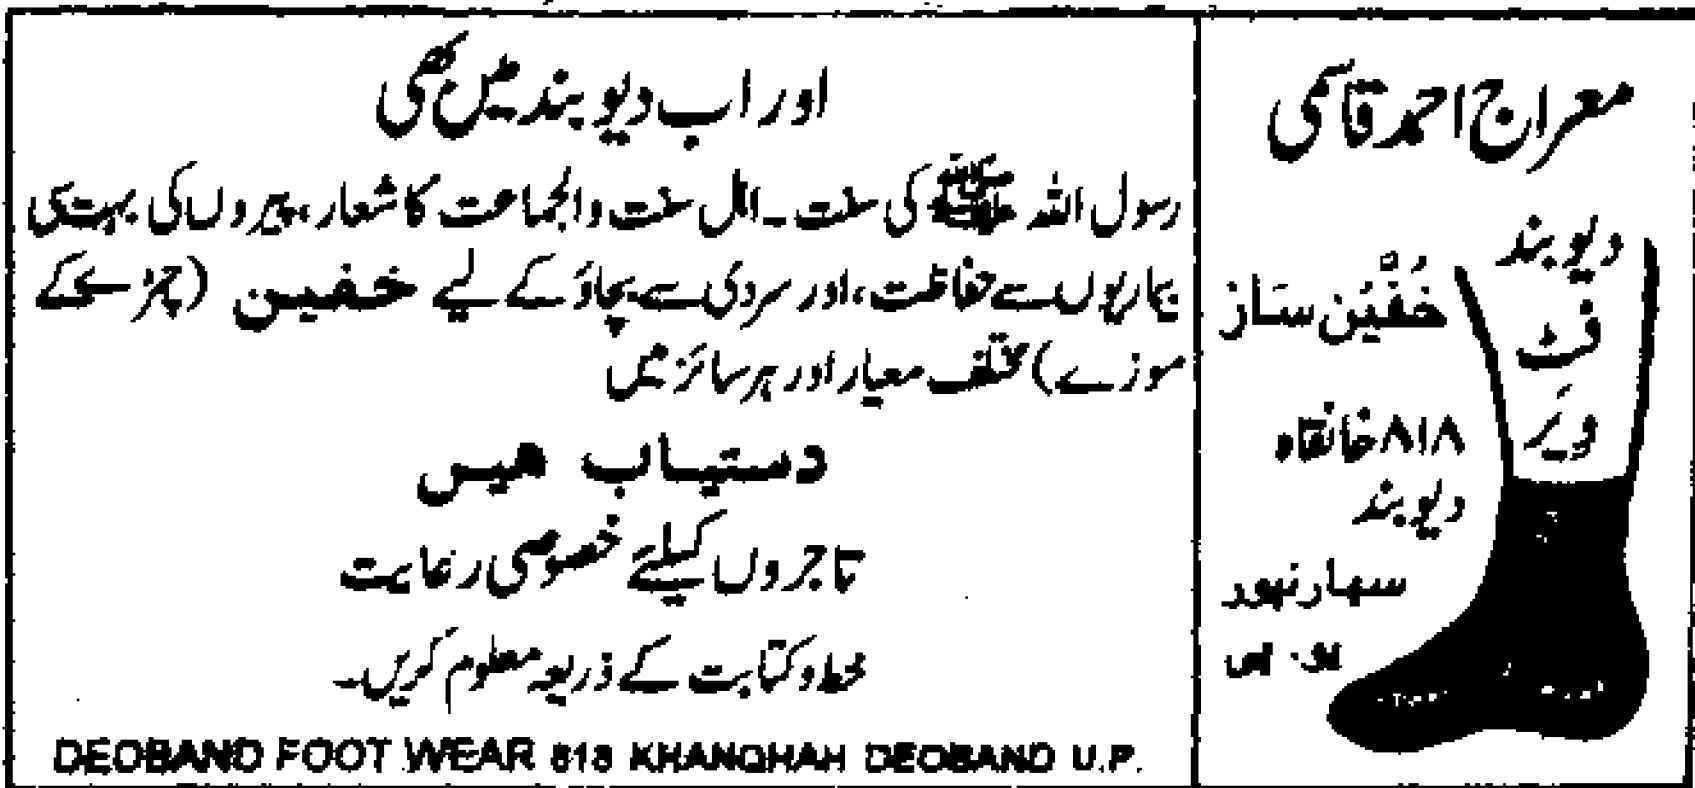 معراج احمد قاسمی
دیوبند
فٹ
ویَر
خُفَّیْن سَاز
۸۱۸ خانقاہ
دیوبند
سہارنپور
یو. پی
اور اب دیوبند میں بھی
رسول اللہ ﷺ کی سنت ۔ اہل سنت والجماعت کا شعار، پیروں کی بہت سی
بیماریوں سے حفاظت، اور سردی سے بچاؤ کے لیے خفین (چمڑے کے
موزے) مختلف معیار اور ہر سائز میں
دستیاب ہیں
تاجروں کیلئے خصوصی رعایت
خط و کتابت کے ذریعہ معلوم کریں۔
DEOBAND FOOT WEAR 818 KHANQHAH DEOBAND U.P.